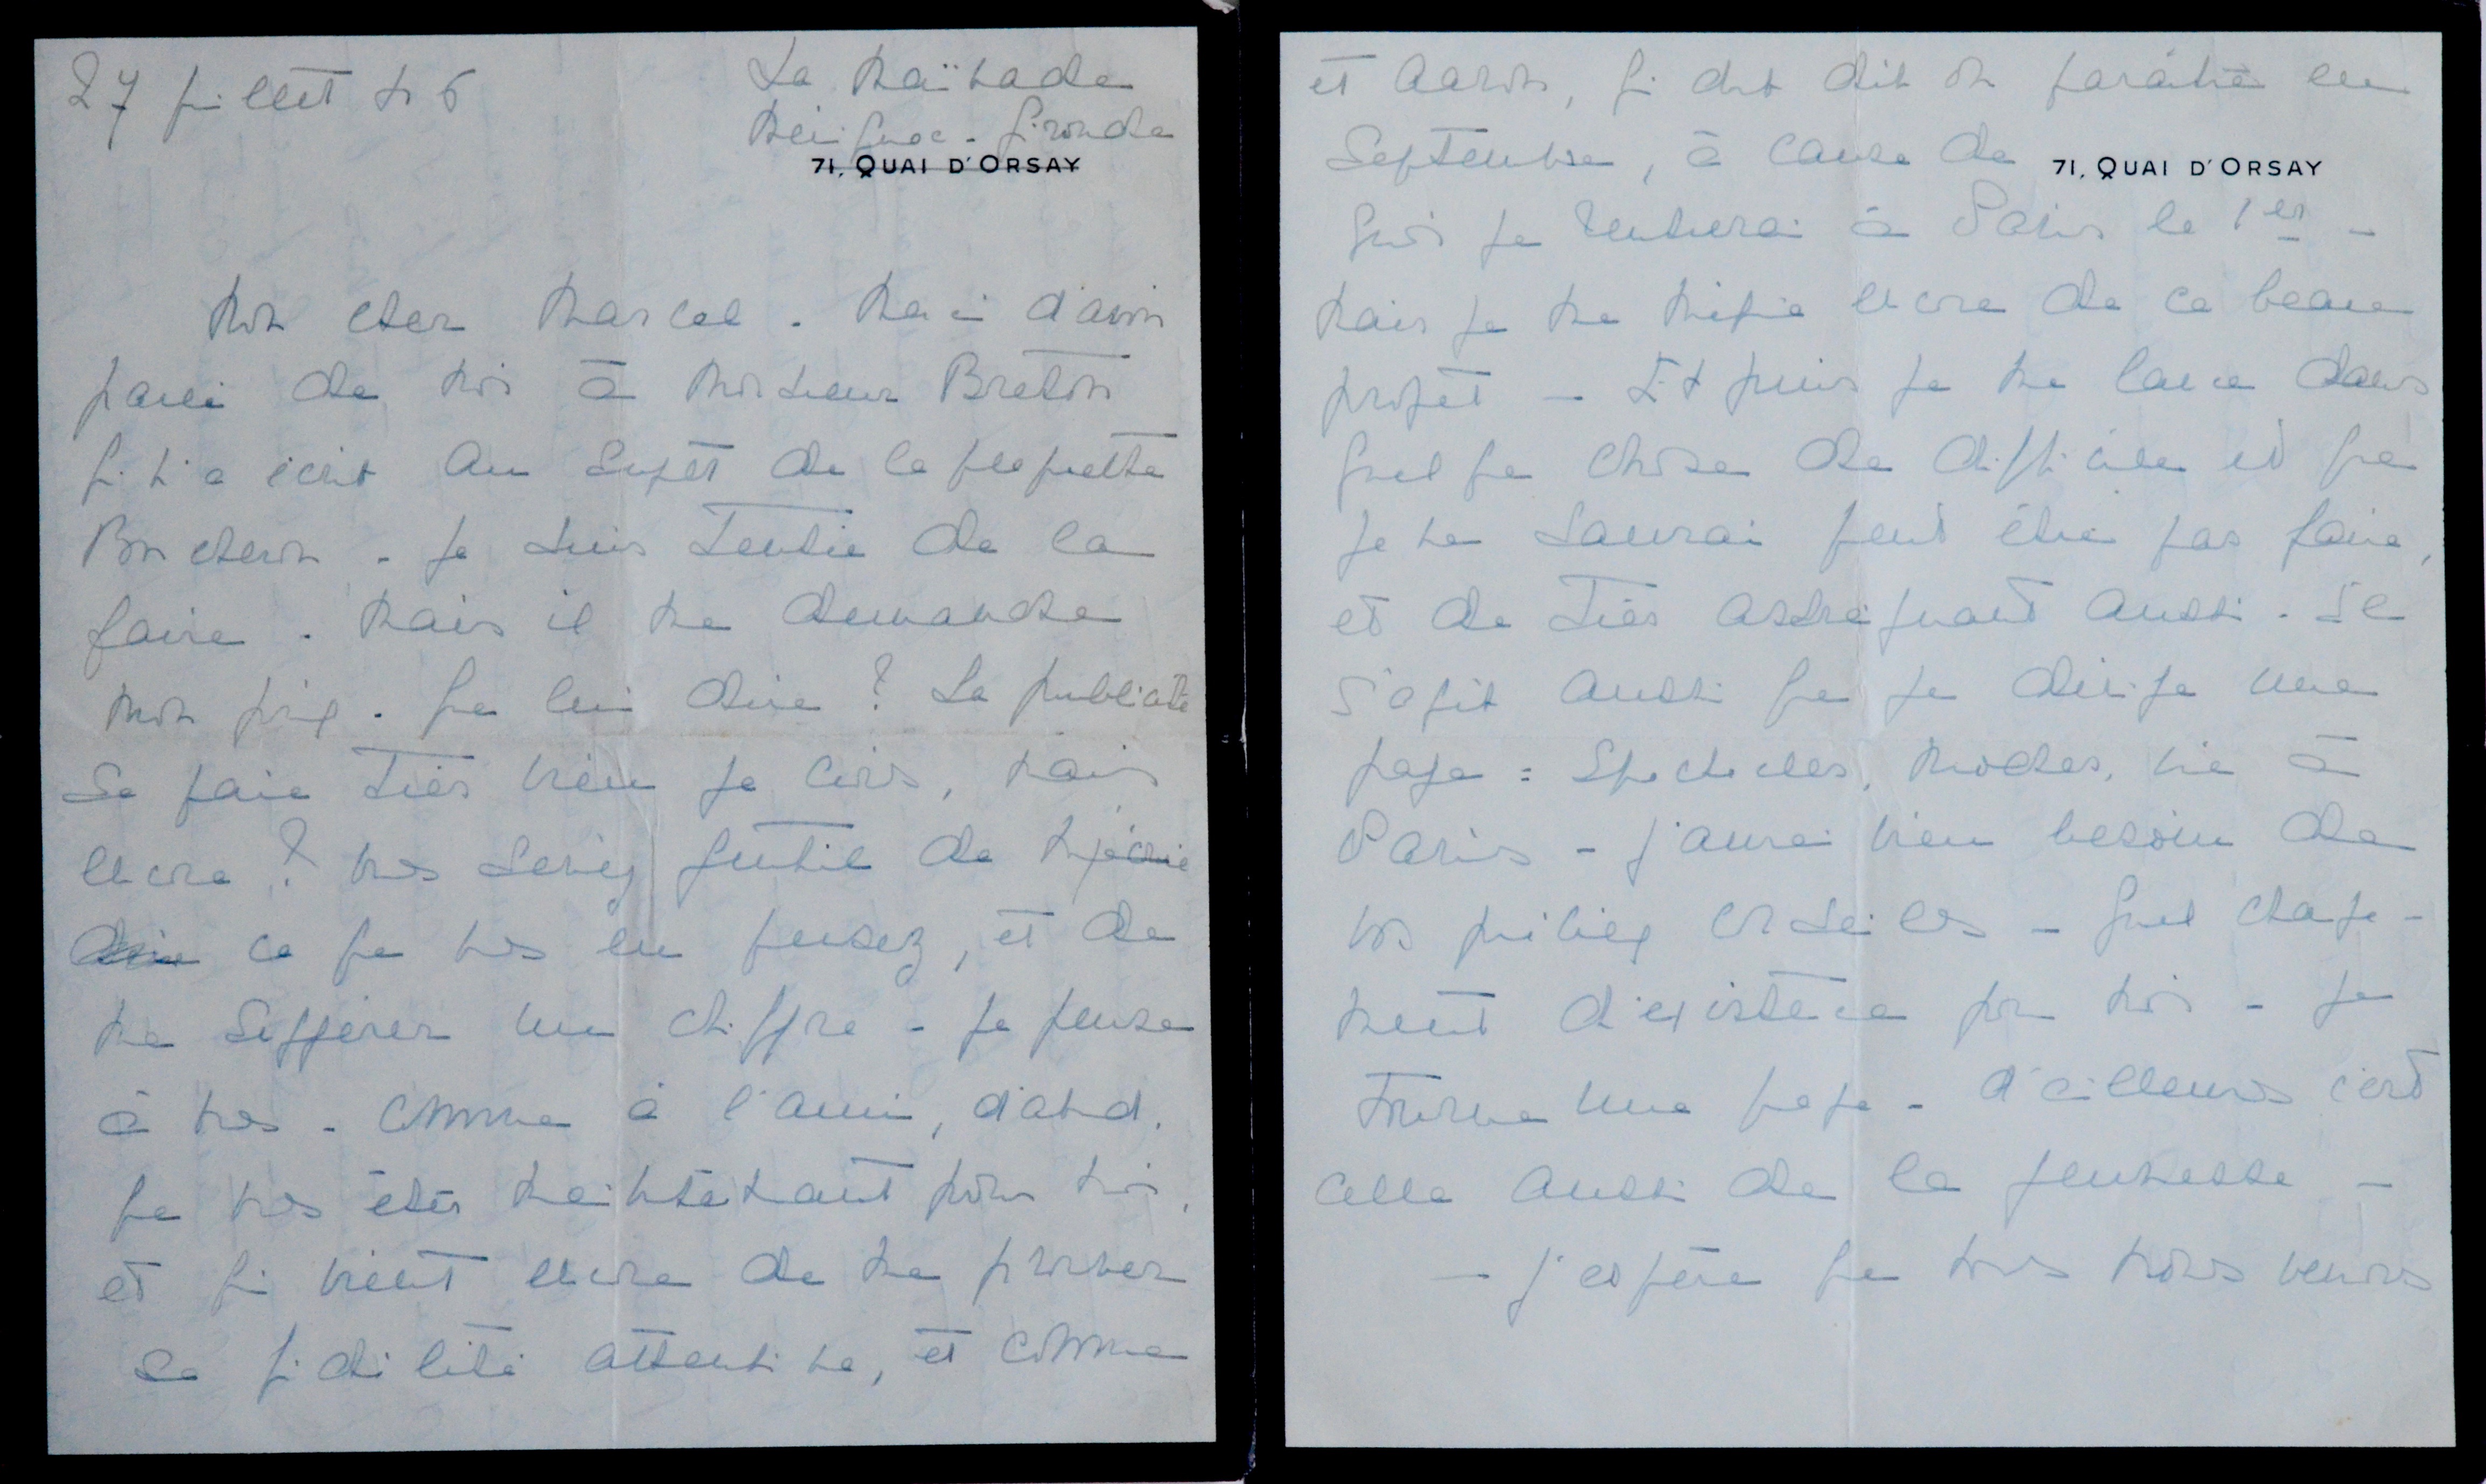 27 juillet 46
La
Mérignac - Gironde
71, QUAI D'ORSAY
Mon cher Marcel. Merci d'avoir
parlé de moi à Monsieur Breton
qui m'a écrit au sujet de la plaquette
Boucheron. Je suis tentée de la
faire. Mais il me demande
mon prix. Que lui dire ? La publicité
se paie très bien je crois, mais
encore ? Vous seriez gentil de m'écrire
dire ce que vous en pensez, et de
me suggérer un chiffre - Je pense
à vous. Comme à l'ami, d'abord,
que vous êtes maintenant pour moi,
et qui vient encore de me prouver
sa fidélité attentive, et comme
et Aaron, qui doit dit on paraître en
Septembre, à cause de
71, QUAI D'ORSAY
quoi je rentrerai à Paris le 1er -
Mais je me méfie encore de ce beau
projet - Et puis je me lance dans
quelque chose de difficile et que
je ne saurai peut être pas faire,
et de très astreignant aussi. Il
s'agit aussi que je dirige une
page : Spectacles, Modes, vie à
Paris - J'aurai bien besoin de
vos précieux conseils - Quel change-
ment d'existence pour moi - Je
tourne une page - d'ailleurs c'est
celle aussi de la jeunesse -
- J'espère que nous nous verrons